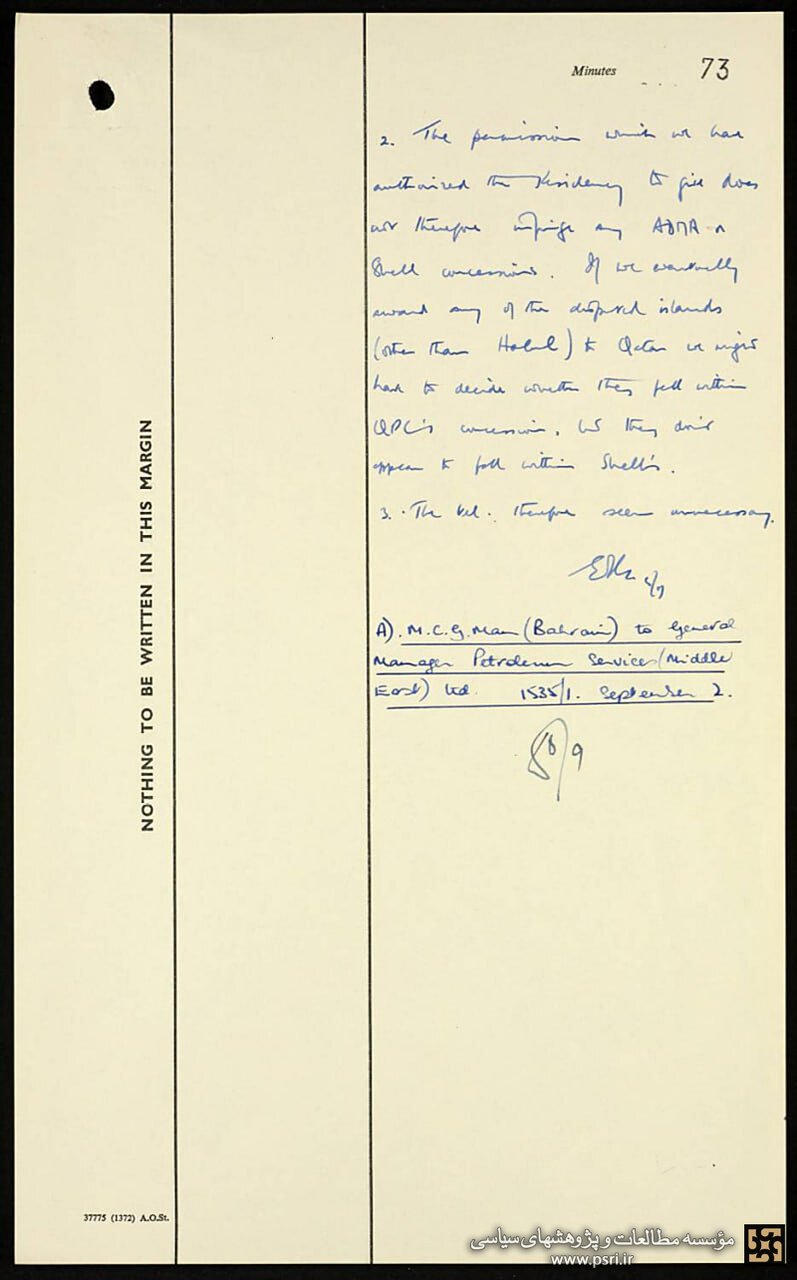 Minutes 73
2. The permission which we had
authorised the Residency to give does
not therefore infringe any ADMA or
Shell concessions. If we eventually
award any of the disputed islands
(other than Halul) to Qatar we might
have to decide whether they fell within
QPC's concession, but they don't
appear to fall within Shell's.
3. The tel. therefore seems unnecessary.
A). M.C.G. Man (Bahrain) to General
Manager Petroleum Services (Middle
East) Ltd. 1535/1. September 2.
8/9
NOTHING TO BE WRITTEN IN THIS MARGIN
37775 (1372) A.O.St.
مؤسسه مطالعات و پژوهشهای سیاسی
www.psri.ir